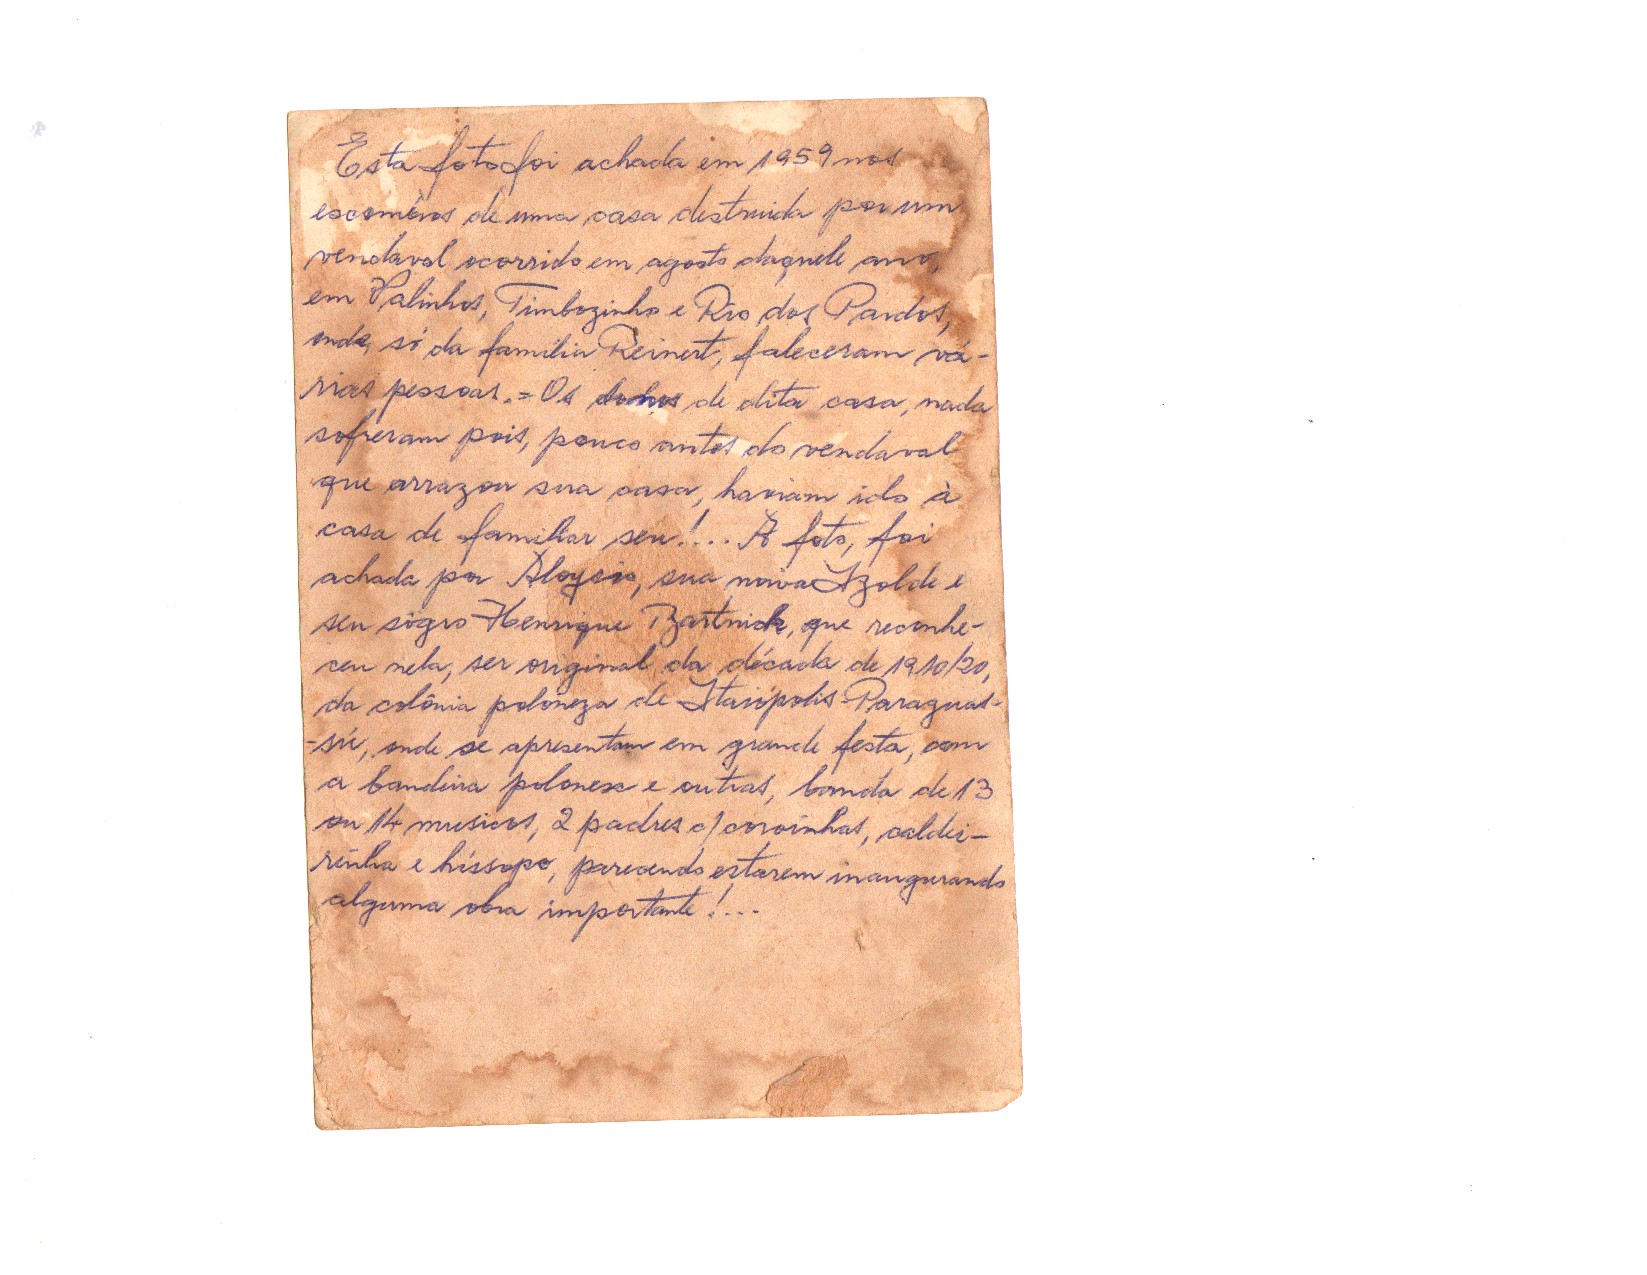 Esta foto foi achada em 1959 nos
escombros de uma casa destruida por um
vendaval ocorrido em agosto daquele ano,
em Valinhos, Timbozinho e Rio dos Pardos,
onde, só da familia Reinert, faleceram vá-
rias pessoas. = Os donos de dita casa, nada
sofreram pois, pouco antes do vendaval
que arrazou sua casa, haviam ido à
casa de familiar seu!... A foto, foi
achada por Aloysio, sua noiva Izolde e
seu sogro Henrique Bartnick, que reconhe-
ceu nela, ser original da década de 1910/20,
da colônia poloneza de Itaiópolis-Paraguas-
=sú, onde se apresentam em grande festa, com
a bandeira polonesa e outras, banda de 13
ou 14 musicos, 2 padres c/ coroinhas, caldei-
rinha e hissope, parecendo estarem inaugurando
alguma obra importante!...